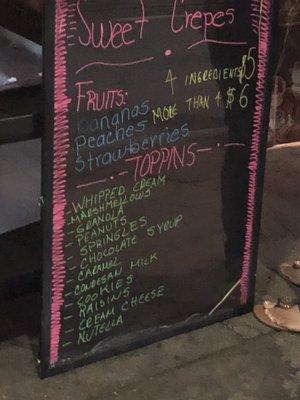 Sweet Crepes
4 INGREDIENTS $5
FRUITS:
MORE THAN 4 $6
Bananas
Peaches
Strawberries
- TOPPINS -
- WHIPPED CREAM
- MARSHMELLOWS
- GRANOLA
- PEANUTS
- SPRINGLES
- CHOCOLATE SYRUP
- CARAMEL
- CONDESAN MILK
- COOKIES
- RAISINS
- CREAM CHEESE
- NUTELLA